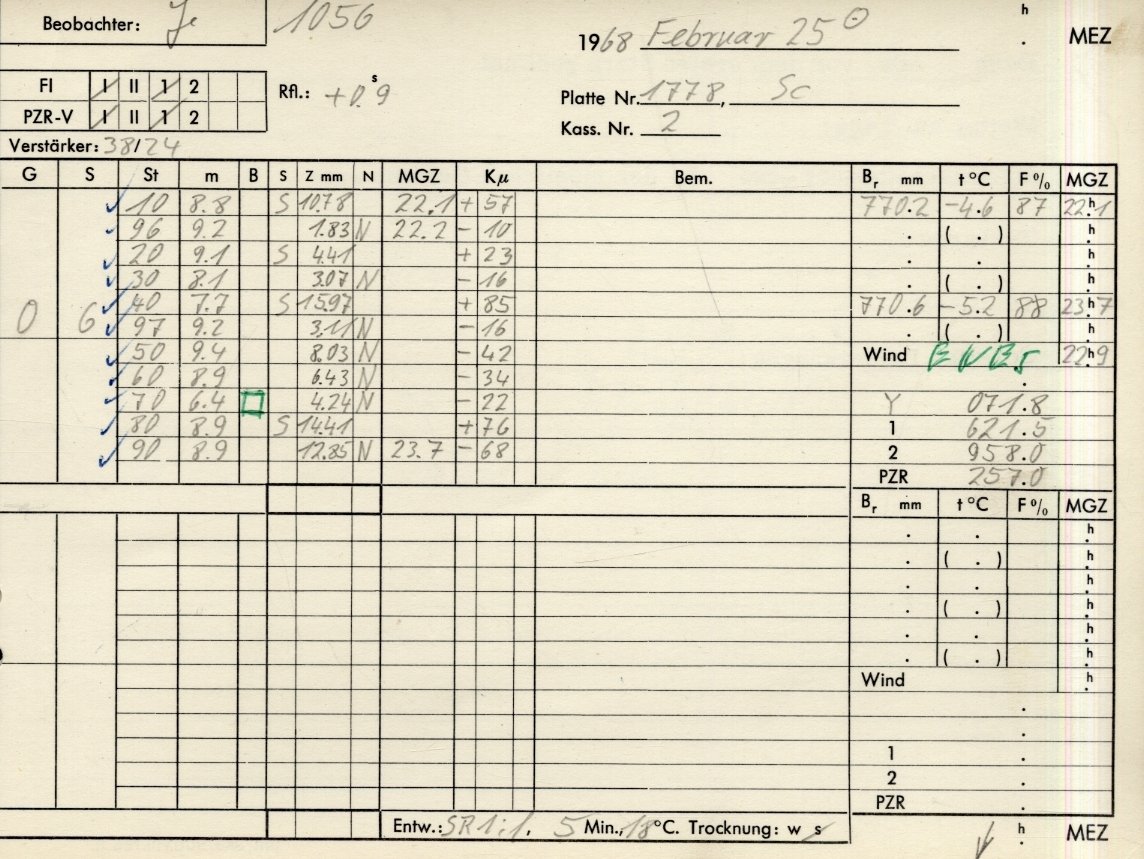 Beobachter: Je 1056 h
1968 Februar 25 ⊙ . MEZ
FI I II 1 2 Rfl.: +0.9 s
Platte Nr. 1778, Sc
PZR-V I II 1 2
Kass. Nr. 2
Verstärker: 38/24
G S St m B S Z mm N MGZ Kμ Bem. Br mm t °C F % MGZ
10 8.8 S 10.78 22.1 + 57 770.2 -4.6 87 22.h1
96 9.2 1.83 N 22.2 - 10 . ( . ) h.
20 9.1 S 4.41 + 23 . . h.
30 8.1 3.07 N - 16 . ( . ) h.
40 7.7 S 15.97 + 85 770.6 -5.2 88 23.h7
0 6 97 9.2 3.11 N - 16 . ( . ) h.
50 9.4 8.03 N - 42 Wind 22.h9
60 8.9 6.43 N - 34 .
70 6.4 4.24 N - 22 Y 071.8
80 8.9 S 14.41 + 76 1 621.5
90 8.9 12.85 N 23.7 - 68 2 958.0
PZR 257.0
Br mm t °C F % MGZ
. . h.
. ( . ) h.
. . h.
. ( . ) h.
. . h.
. ( . ) h.
Wind h.
.
.
1 .
2 .
PZR .
Entw.: SR 1:1, 5 Min., 18 °C. Trocknung: w s h. MEZ